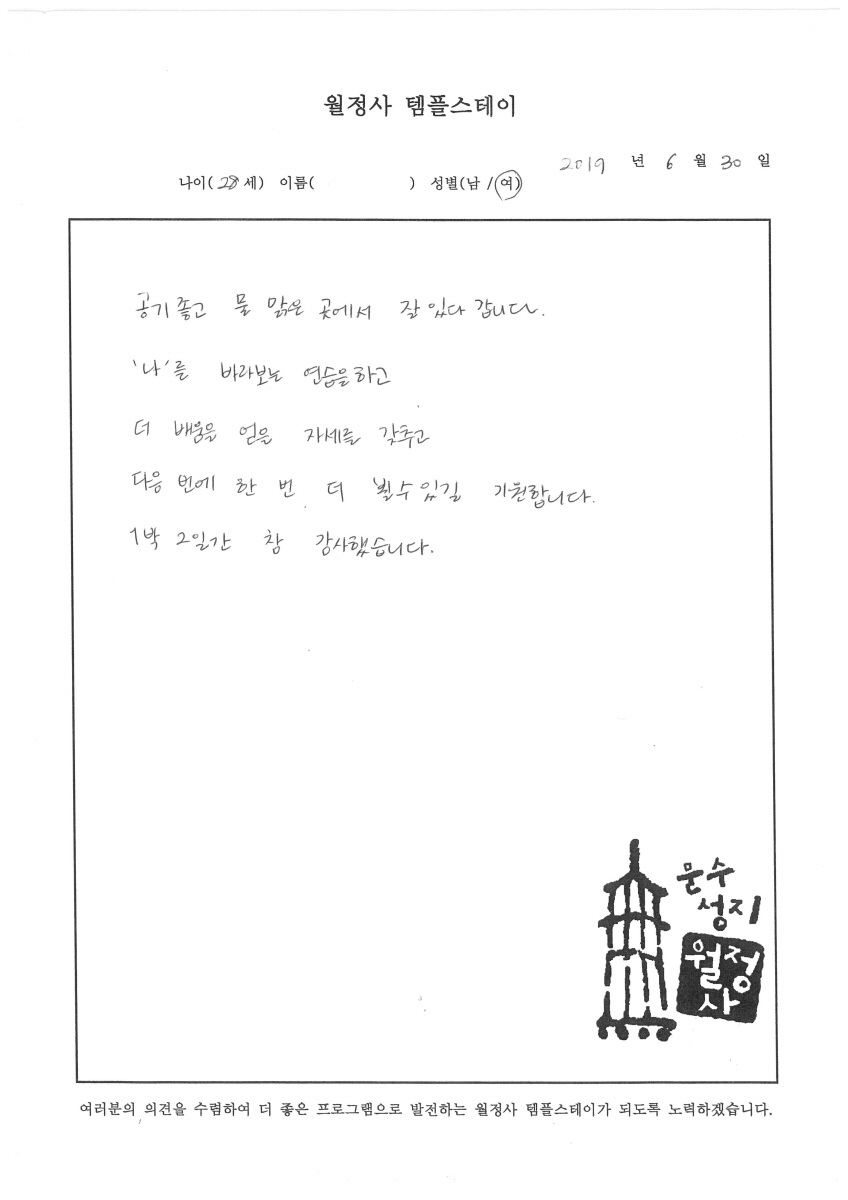 월정사 템플스테이
2019 년 6 월 30 일
나이( 28 세) 이름( ) 성별(남 /여)
공기 좋고 물 맑은 곳에서 잘 있다 갑니다.
'나'를 바라보는 연습을 하고
더 배움을 얻을 자세를 갖추고
다음 번에 한 번 더 뵐 수 있길 기원합니다.
1박 2일간 참 감사했습니다.
문수
성지
월정
사
여러분의 의견을 수렴하여 더 좋은 프로그램으로 발전하는 월정사 템플스테이가 되도록 노력하겠습니다.